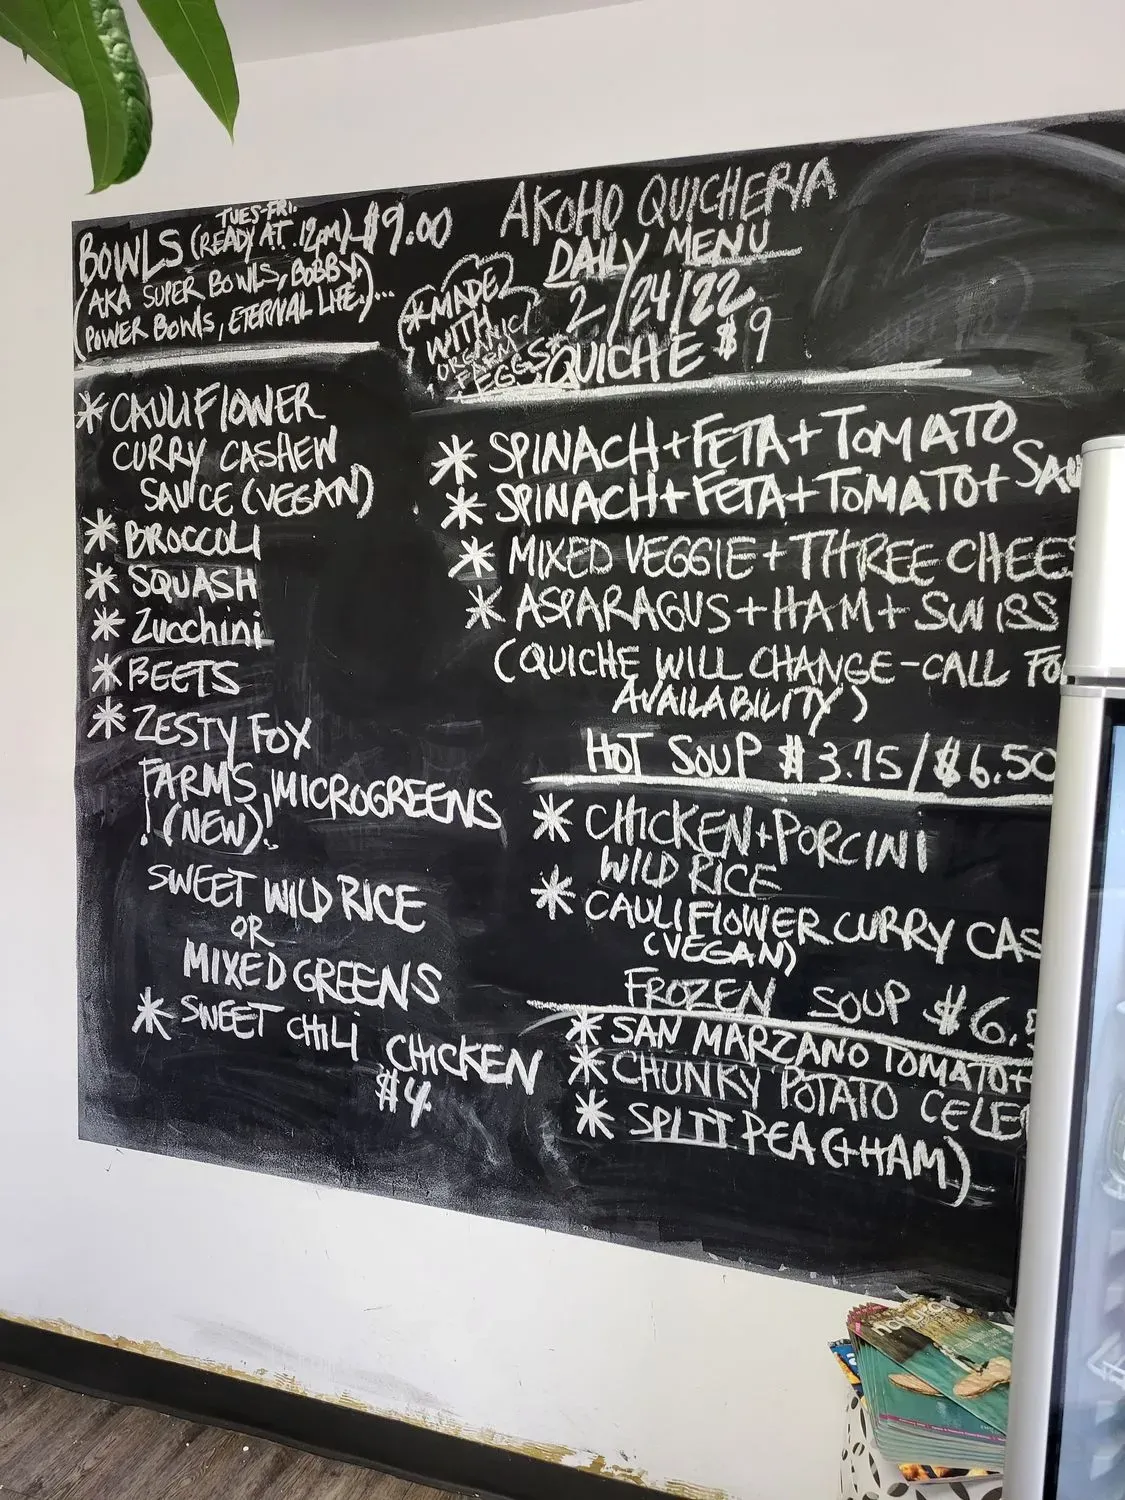 AKOHO QUICHERIA
DAILY MENU
2/24/22
TUES-FRI.
BOWLS (READY AT 12PM) $9.00
(AKA SUPER BOWLS, BOBBY,
POWER BOWLS, ETERNAL LIFE.)...
* CAULIFLOWER
CURRY CASHEW
SAUCE (VEGAN)
* BROCCOLI
* SQUASH
* Zucchini
* BEETS
* ZESTY FOX
FARMS MICROGREENS
! (NEW)!
SWEET WILD RICE
OR
MIXED GREENS
* SWEET CHILI CHICKEN
$4
*MADE
WITH
ORGANIC/
FARM
EGGS*
QUICHE $9
* SPINACH + FETA + TOMATO
* SPINACH + FETA + TOMATO + SAU
* MIXED VEGGIE + THREE CHEES
* ASPARAGUS + HAM + SWISS
(QUICHE WILL CHANGE-CALL FO
AVAILABILITY)
HOT SOUP $3.75/$6.50
* CHICKEN + PORCINI
WILD RICE
* CAULIFLOWER CURRY CAS
(VEGAN)
FROZEN SOUP $6.
* SAN MARZANO TOMATO+
* CHUNKY POTATO CELE
* SPLIT PEA (+HAM)